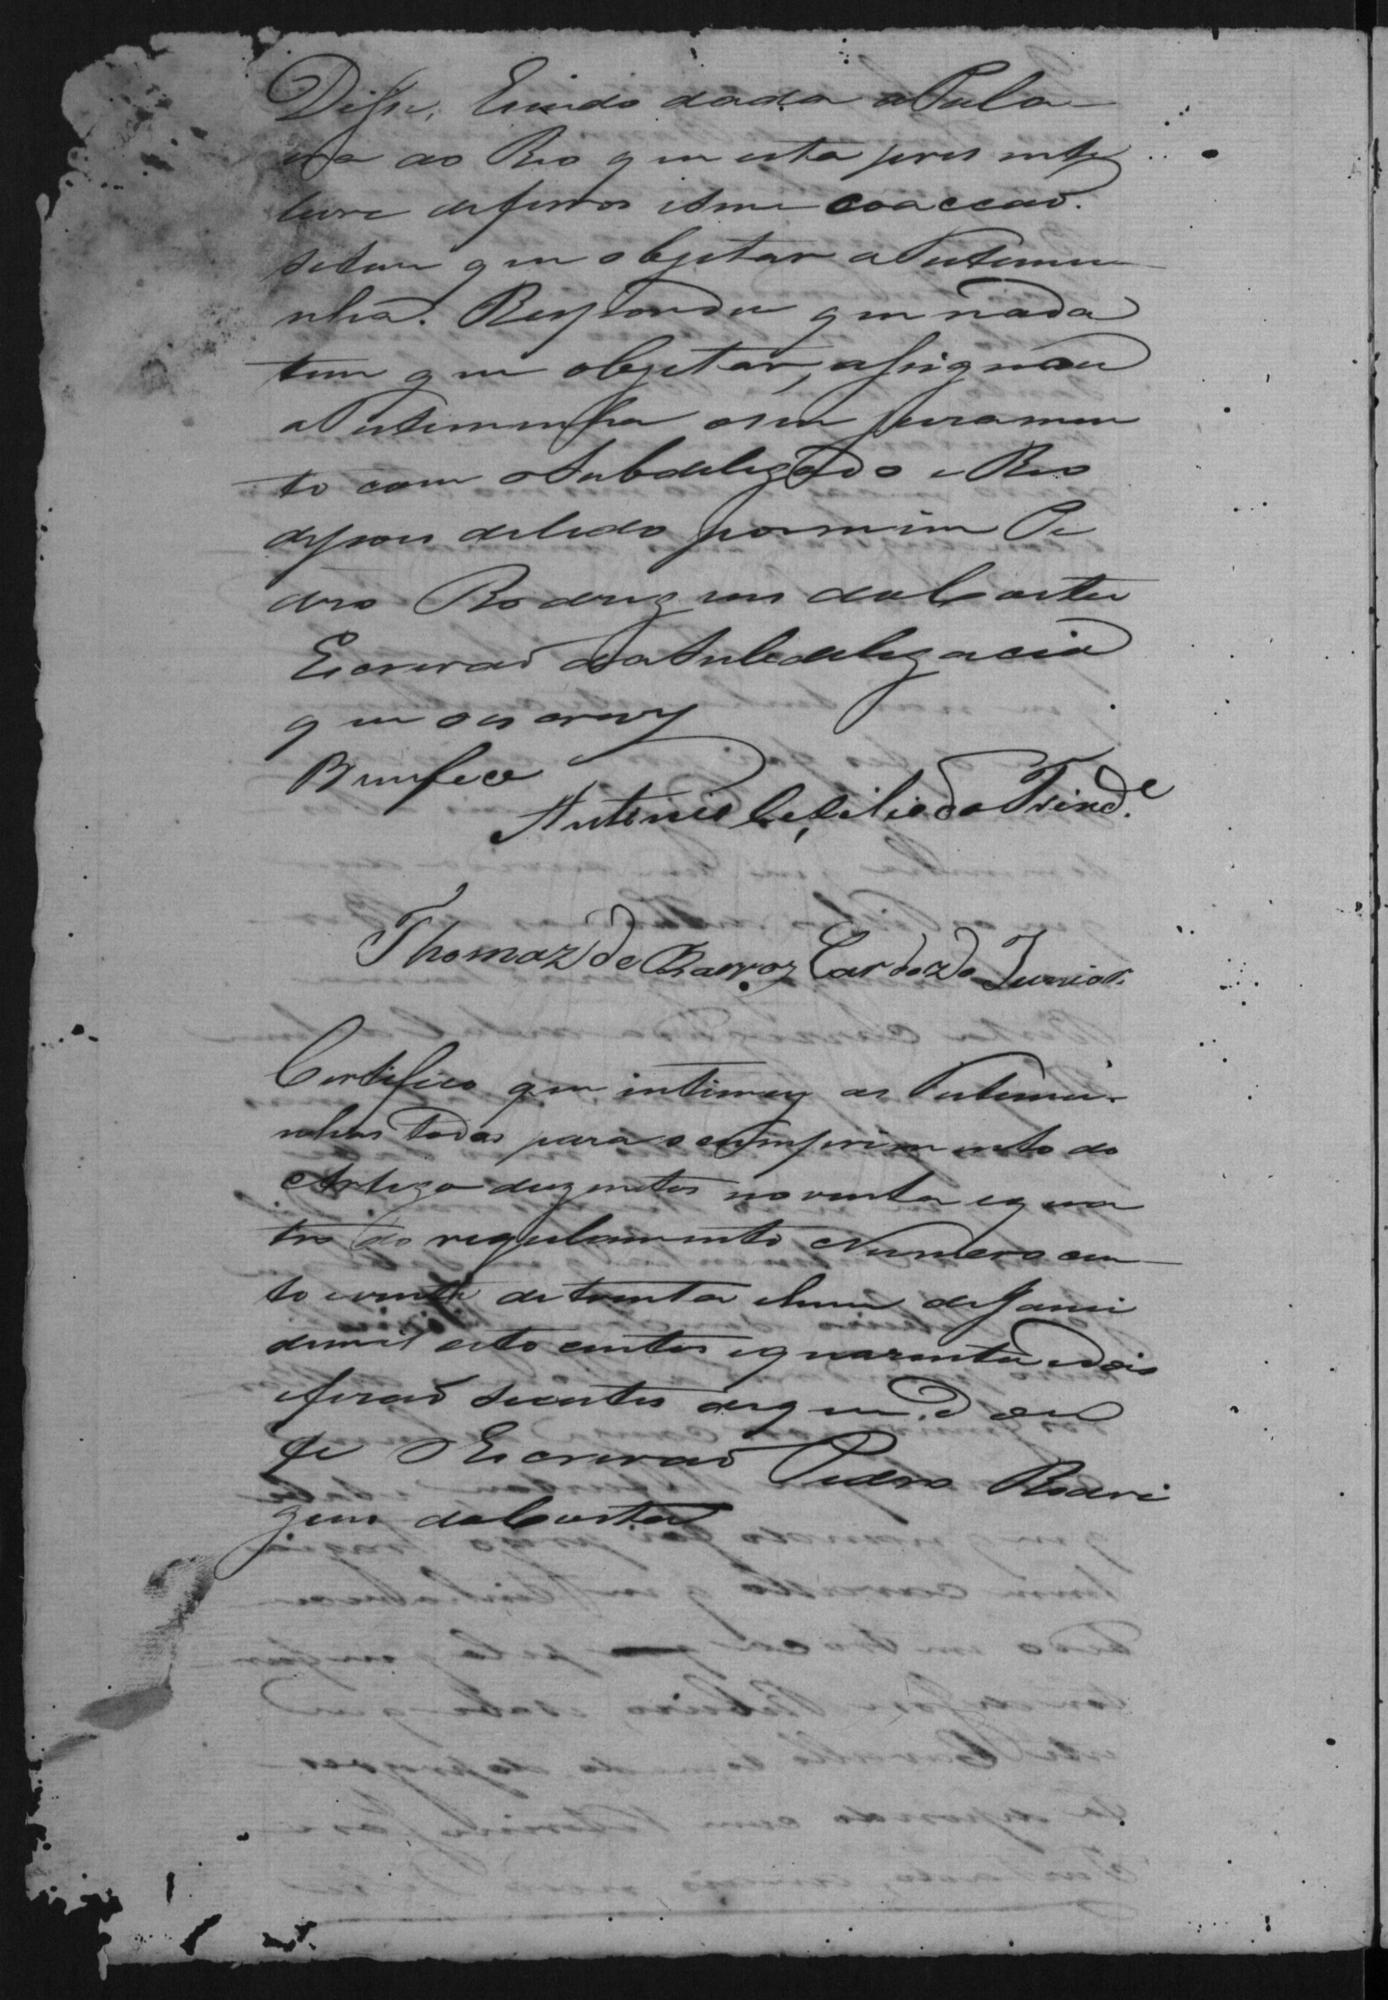 Disse, E sendo dada a Pala-
vra ao Reo que esta presente
livre de ferros e sem coaccaõ.
se tem que objetar a Testemu-
nha. Respondeu que nada
tem que objetar, assignou
a Testemunha o seu juramen
to com o Subdelegado e Reo
depois de lido por mim Pe
dro Rodrigues da Costa
Escrivaõ da Subdelegacia
que o escrevy
Bemfica
Antonio Cesilio da Trind.e
Thomaz de Barros Cardozo Junior.
Certifico que intimey as Testemu-
nhas todas para o cumprimento do
Artigo duzentos noventa e qua
tro do regulamento Numero cen-
to e vinte de trinta e hum de Janei
de mil oito centos e quarenta e dois
e ficaõ scientes do que dou
fe O Escrivaõ Pedro Rodri
gues da Costa